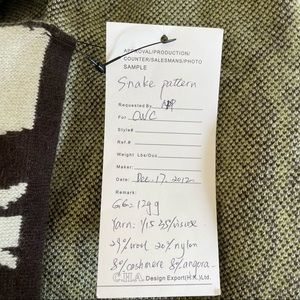 APPROVAL/PRODUCTION/
COUNTER/SALESMANS/PHOTO
SAMPLE
Snake pattern
Requested By
For OWC
Style#
Ref.#
Weight Lbs/Doz
Maker:
Date: Dec. 17. 2012
Remark:
GG= 12gg
Yarn: 1/15 35/viscose
29% wool 20% nylon
8% cashmere 8% angora
C.H.A. Design Export(H.K.)Ltd.